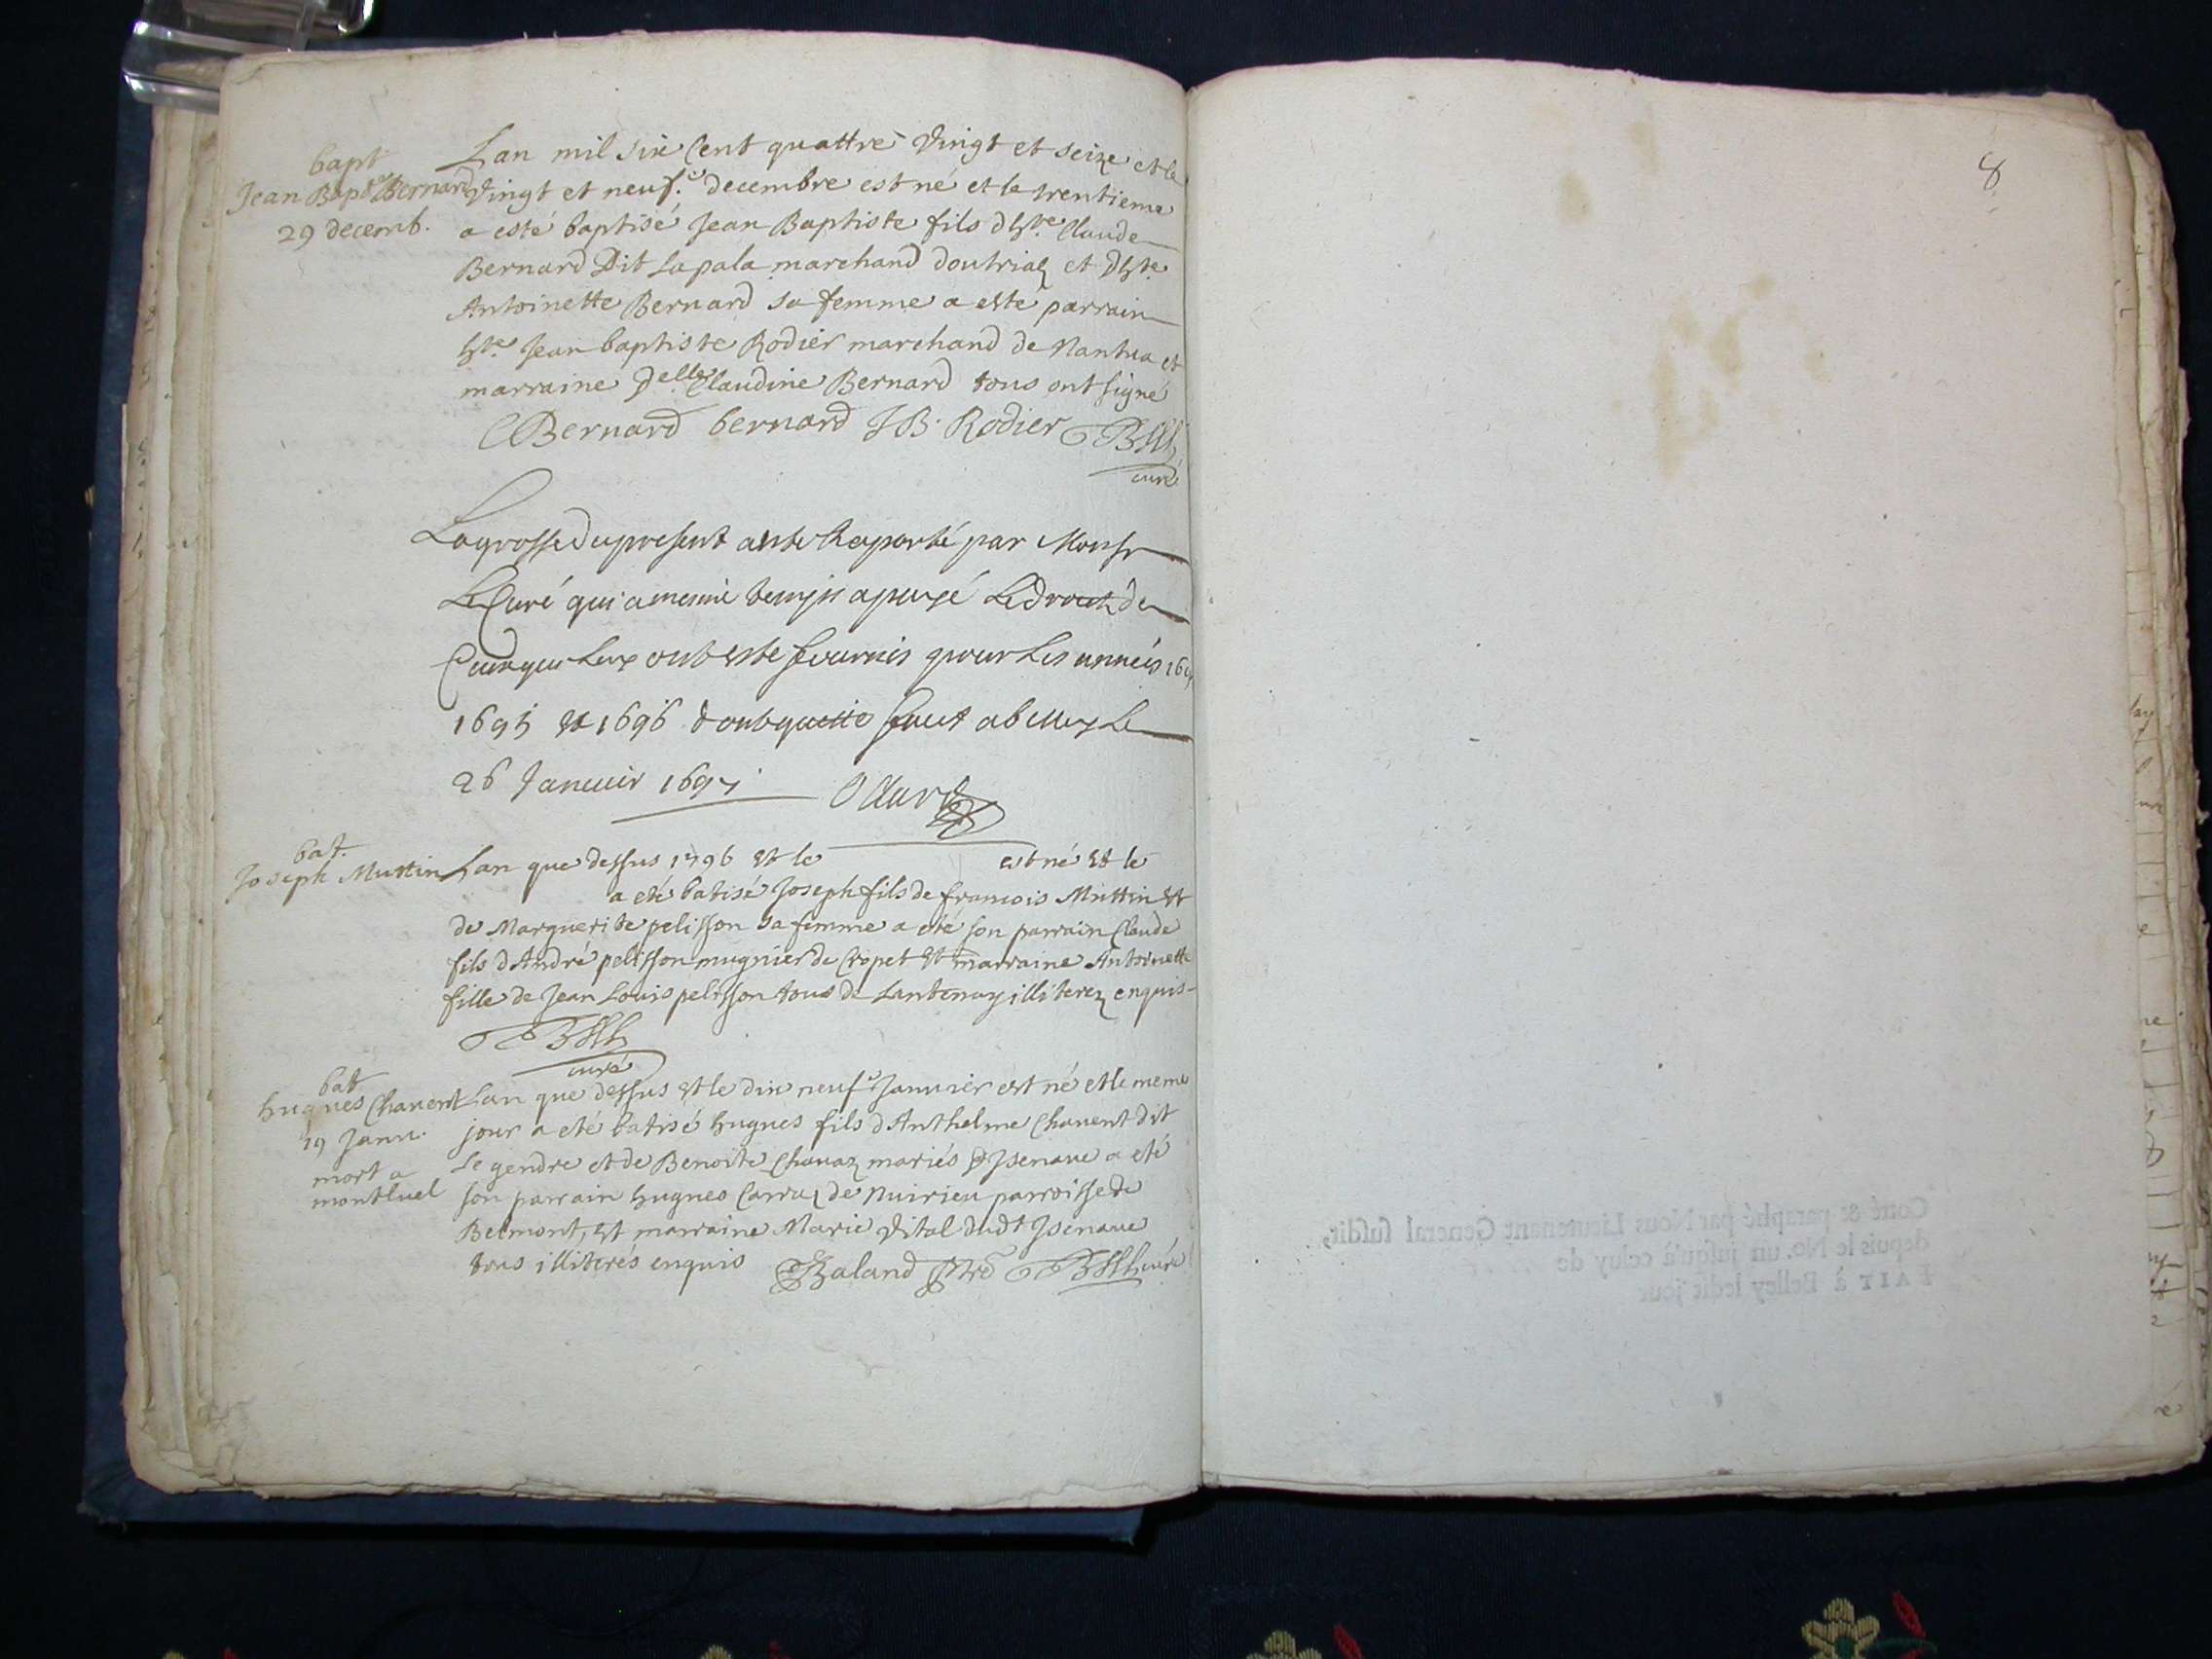 bapt
Jean Bapte Bernard
29 decemb.
Lan mil six Cent quattre Vingt et seize et le
Vingt et neuf.e decembre est né et le trentieme
a esté baptisé Jean Baptiste fils dhte Claude
Bernard Dit Lapala marchand doutriaz et dhte
Antoinette Bernard sa femme a esté parrain
hte Jean baptiste Rodier marchand de Nantua et
marraine Delle Claudine Bernard tous ont signé
CBernard bernard JB. Rodier
curé
La grosse du present a este Raporté par Monsr
Le Curé qui a mesme temps a payé Le droit de
ont este fournis pour Les années
1695 et 1696 dont quitte faict a belley Le
26 Janvier 1697
bat.
Joseph Muttin
Lan que dessus 1796 et le est né et le
a eté batisé Joseph fils de francois Muttin et
de Marguerite pelisson sa femme a eté son parrain Claude
fils dAndré pelisson mugnier de Cropet et marraine Antoinette
fille de Jean Louis pelisson tous de Lantenay illiterez enquis
curé
bat
hugues Chanent
19 Janu.
mort a
montluel
Lan que dessus et le dix neufe Januier est né et le meme
jour a eté batisé hugues fils dAnthelme Chanent dit
Le gendre et de Benoite Chanaz mariés dJsenaue a eté
son parrain hugues Carraz de Nuirieu parroisse de
Belmont, et marraine Marie Vital dudt Jsenaue
tous illiterés enquis Baland ptre curé
8
Cotté & paraphé par Nous Lieutenant General susdit,
depuis le No. un jusqu'à celuy de
FAIT à Belley ledit jour